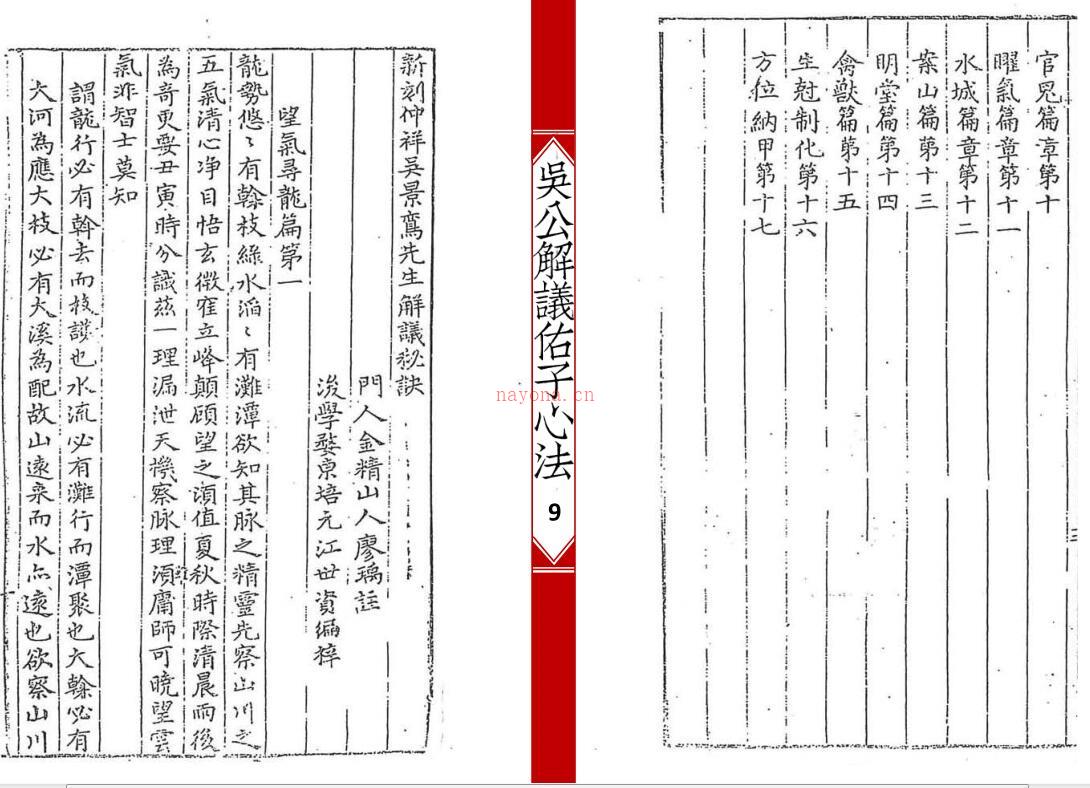 官鬼篇章第十
曜氣篇章第十一
水城篇章第十二
案山篇第十三
明堂篇第十四
禽獸篇第十五
生尅制化第十六
方位納甲第十七
三
吳公解議佑子心法
9
nayona.cn
新刻仰祥吳景鸞先生解議秘訣
門人金精山人廖瑀註
後學婺東培元江世資編粹
望氣尋龍篇第一
龍勢悠〻有榦枝綠水滔〻有灘潭欲知其脉之精靈先察山川之
五氣清心净目悟玄微隺立峰顛顧望之湏值夏秋時際清晨雨後
為奇更要丑寅時分識茲一理漏泄天機察脉理湏庸師可曉望雲
氣非智士莫知
謂龍行必有榦去而枝護也水流必有灘行而潭聚也大榦必有
大河為應大枝必有大溪為配故山遠來而水亦遠也欲察山川